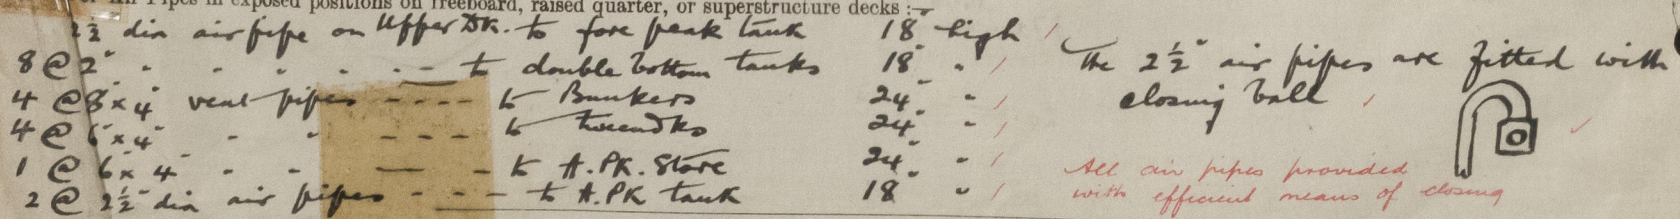 Air Pipes in exposed positions on freeboard, raised quarter, or superstructure decks :—
2½" dia air pipe on Upper Dk. to fore peak tank 18" high
8 @ 2" " " " " " — to double bottom tanks 18" "
4 @ 8" x 4" vent pipes - - - - to Bunkers 24" "
4 @ 6" x 4" " " - - - to tweendks 24" "
1 @ 6" x 4" " " — — to A.PK. Store 24" "
2 @ 2½" dia air pipes - - - to A.PK tank 18" "
The 2½" air pipes are fitted with
closing ball
All air pipes provided
with efficient means of closing